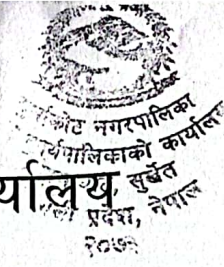 नगरपालिका
कार्यपालिकाको कार्यालय
र्यालय, सुर्खेत
प्रदेश, नेपाल
२०७३